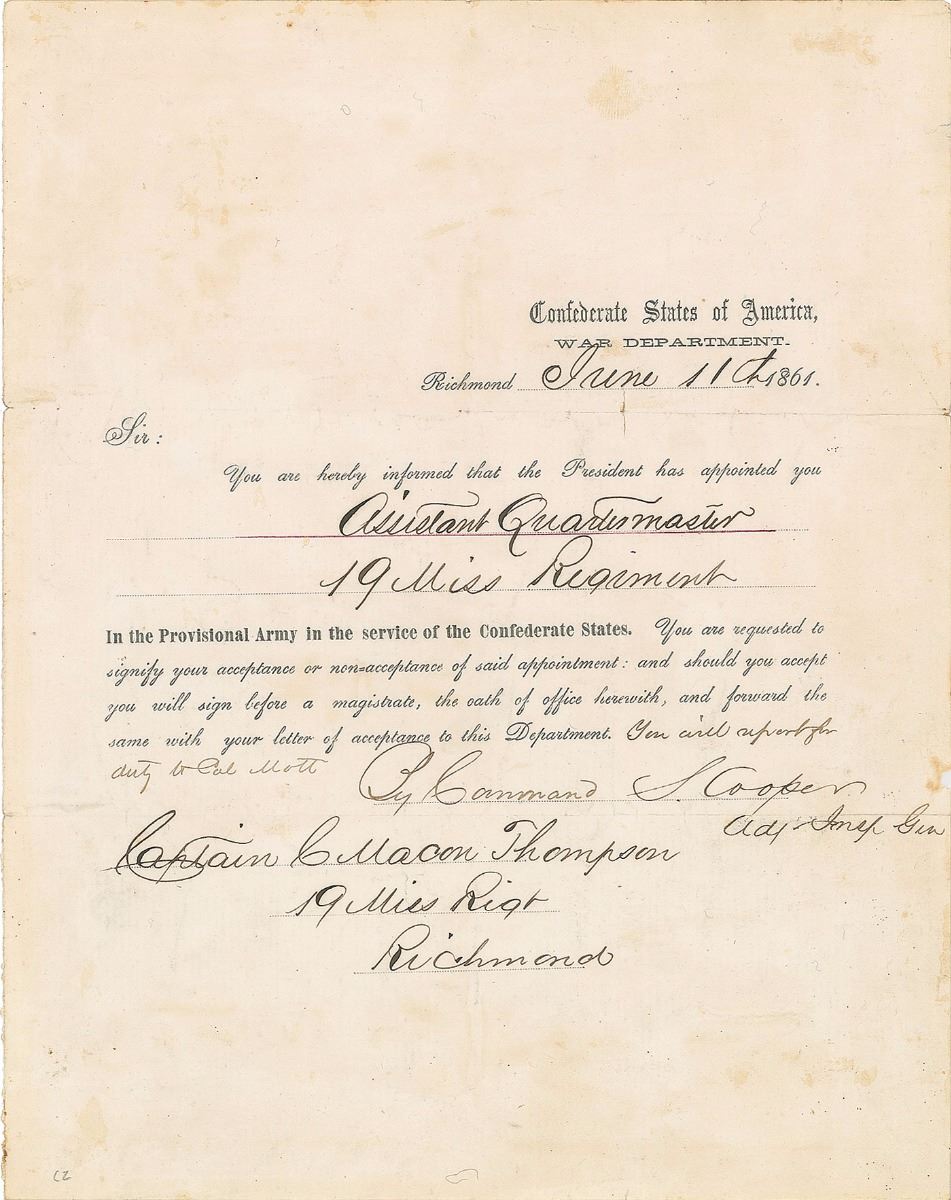 Confederate States of America,
WAR DEPARTMENT.
Richmond June 11th 1861.
Sir:
You are hereby informed that the President has appointed you
Assistant Quartermaster
19 Miss Regiment
In the Provisional Army in the service of the Confederate States. You are requested to
signify your acceptance or non=acceptance of said appointment: and should you accept
you will sign before a magistrate, the oath of office herewith, and forward the
same with your letter of acceptance to this Department. You will report for
duty to Col Mott
By Command S. Cooper
Adj. Insp Gen
Captain C Macon Thompson
19 Miss Regt
Richmond